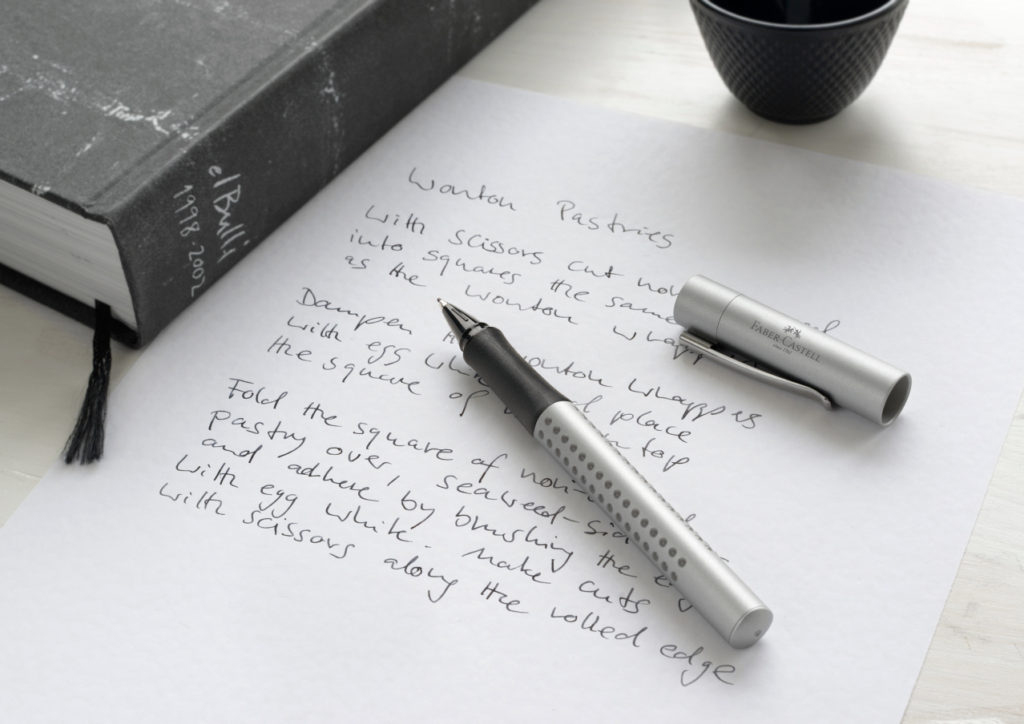 elBulli
1998-2002
Wonton Pastries
with scissors cut
into squares the same
as the wonton
Dampen wonton wrappers
with egg place
the square of top
Fold the square of
pastry over, seaweed-
and adhere by brushing the
with egg white. Make cuts
with scissors along the rolled edge
FABER-CASTELL